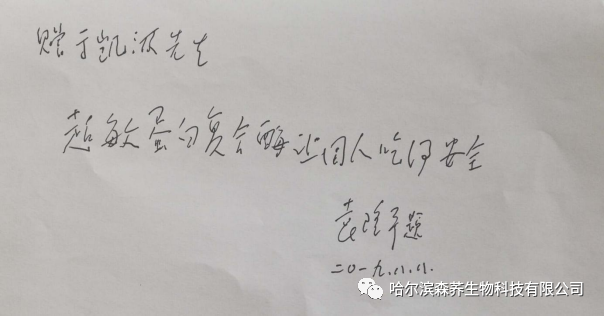 赠于凯波先生
超敏蛋白复合酶让国人吃得安全
袁隆平题
二〇一九.八.八.
哈尔滨森养生物科技有限公司